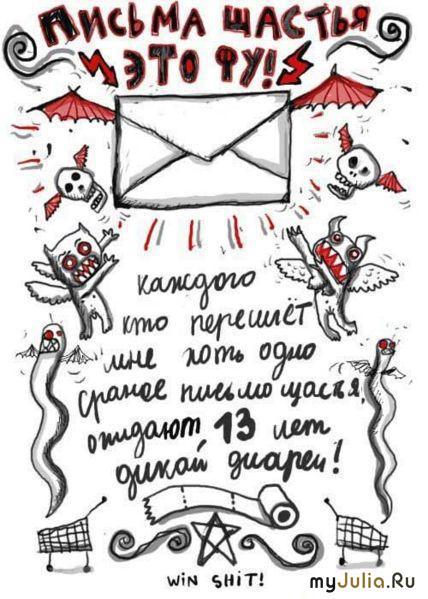 ПИСЬМА ЩАСТЬЯ
ЭТО ФУ!
каждого
кто перешлёт
мне хоть одно
сраное письмо щастья,
ожидают 13 лет
дикой диареи!
WIN SHIT!
myJulia.Ru